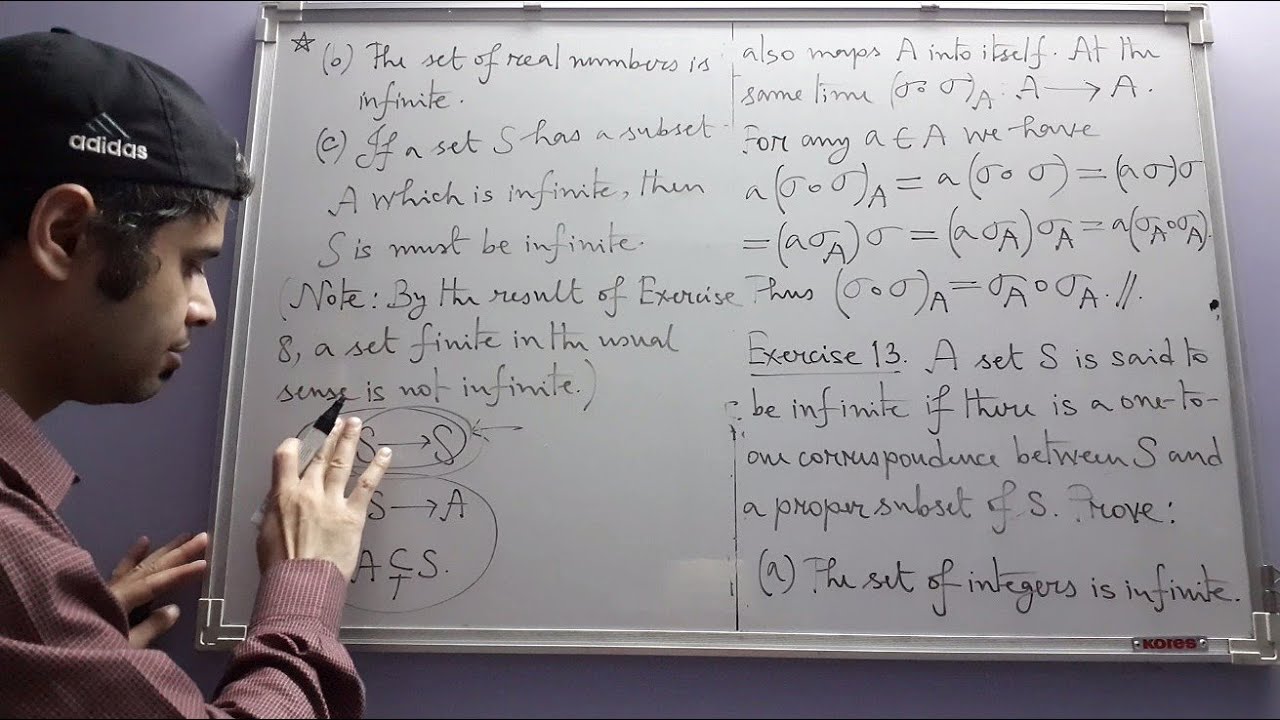 adidas
☆ (b) The set of real numbers is
infinite.
(c) If a set S has a subset
A which is infinite, then
S is must be infinite.
(Note: By the result of Exercise
8, a set finite in the usual
sense is not infinite.)
S ⟶ S
S ⟶ A
A ⊊ S.
also maps A into itself. At the
same time (σ∘σ)_A : A ⟶ A.
For any a ∈ A we have
a(σ∘σ)_A = a(σ∘σ) = (aσ)σ
= (aσ_A)σ = (aσ_A)σ_A = a(σ_A∘σ_A).
Thus (σ∘σ)_A = σ_A∘σ_A. //.
Exercise 13. A set S is said to
be infinite if there is a one-to-
one correspondence between S and
a proper subset of S. Prove:
(a) The set of integers is infinite.
KORES